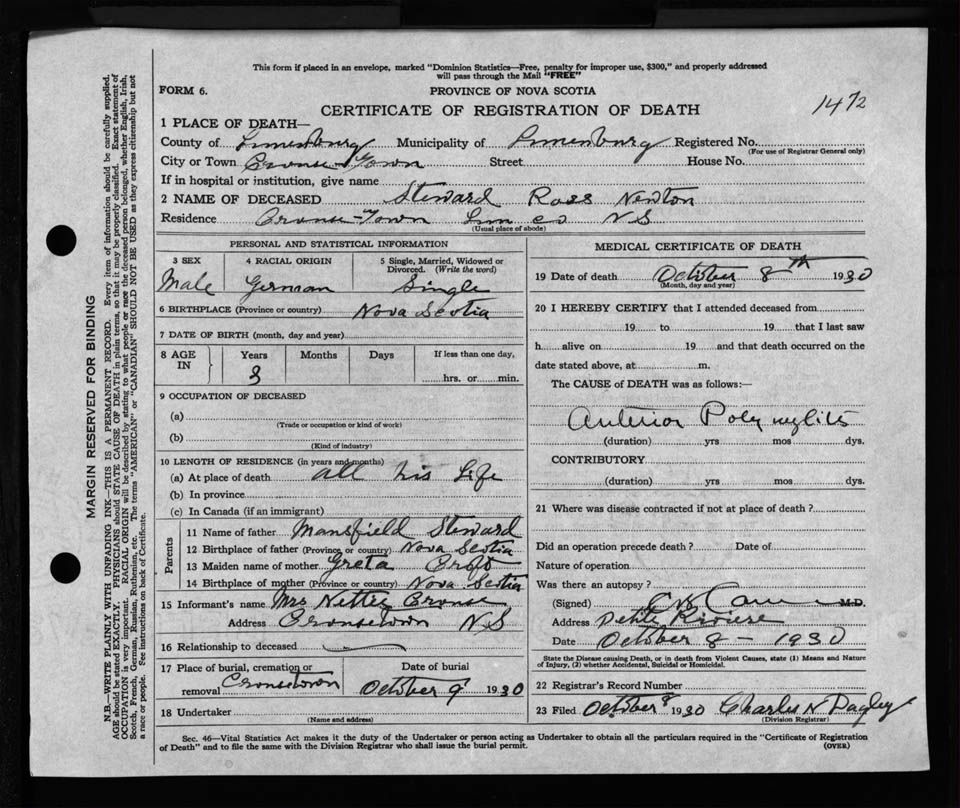 This form if placed in an envelope, marked "Dominion Statistics—Free, penalty for improper use, $300," and properly addressed
will pass through the Mail "FREE"
FORM 6.
PROVINCE OF NOVA SCOTIA
CERTIFICATE OF REGISTRATION OF DEATH
1472
1 PLACE OF DEATH—
County of Lunenburg Municipality of Lunenburg Registered No.
(For use of Registrar General only)
City or Town Crouse-Town Street House No.
If in hospital or institution, give name
2 NAME OF DECEASED Steward Ross Newton
Residence Crouse-Town Lun co NS
(Usual place of abode)
PERSONAL AND STATISTICAL INFORMATION
3 SEX 4 RACIAL ORIGIN 5 Single, Married, Widowed or
Divorced. (Write the word)
Male German Single
6 BIRTHPLACE (Province or country) Nova Scotia
7 DATE OF BIRTH (month, day and year)
8 AGE IN Years Months Days If less than one day,
3 hrs. or min.
9 OCCUPATION OF DECEASED
(a)
(Trade or occupation or kind of work)
(b)
(Kind of industry)
10 LENGTH OF RESIDENCE (in years and months)
(a) At place of death all his Life
(b) In province
(c) In Canada (if an immigrant)
Parents
11 Name of father Mansfield Steward
12 Birthplace of father (Province or country) Nova Scotia
13 Maiden name of mother Greta Croft
14 Birthplace of mother (Province or country) Nova Scotia
15 Informant's name Mrs Nettie Crouse
Address Crousetown NS
16 Relationship to deceased
17 Place of burial, cremation or
removal Crousetown
Date of burial
October 9 1930
18 Undertaker
(Name and address)
MEDICAL CERTIFICATE OF DEATH
19 Date of death October 8th 1930
(Month, day and year)
20 I HEREBY CERTIFY that I attended deceased from
19 to 19 that I last saw
h alive on 19 and that death occurred on the
date stated above, at m.
The CAUSE of DEATH was as follows:—
Anterior
(duration) yrs mos dys.
CONTRIBUTORY
(duration) yrs mos dys.
21 Where was disease contracted if not at place of death?
Did an operation precede death? Date of
Nature of operation
Was there an autopsy?
(Signed) M.D.
Address Petite Riviere
Date October 8 – 1930
State the Disease causing Death, or in death from Violent Causes, state (1) Means and Nature
of Injury, (2) whether Accidental, Suicidal or Homicidal.
22 Registrar's Record Number
23 Filed October 8 1930 Charles N
(Division Registrar)
Sec. 46—Vital Statistics Act makes it the duty of the Undertaker or person acting as Undertaker to obtain all the particulars required in the "Certificate of Registration
of Death" and to file the same with the Division Registrar who shall issue the burial permit.
(OVER)
MARGIN RESERVED FOR BINDING
N.B.—WRITE PLAINLY WITH UNFADING INK—THIS IS A PERMANENT RECORD. Every item of information should be carefully supplied.
AGE should be stated EXACTLY. PHYSICIANS should STATE CAUSE OF DEATH in plain terms, so that it may be properly classified. Exact statement of
OCCUPATION is very important. RACIAL ORIGIN will be described by stating to what people or race the deceased person belonged, whether English, Irish,
Scotch, French, German, Russian, Ruthenian, etc. The terms "AMERICAN" or "CANADIAN" SHOULD NOT BE USED as they express citizenship but not
a race or people. See instructions on back of Certificate.